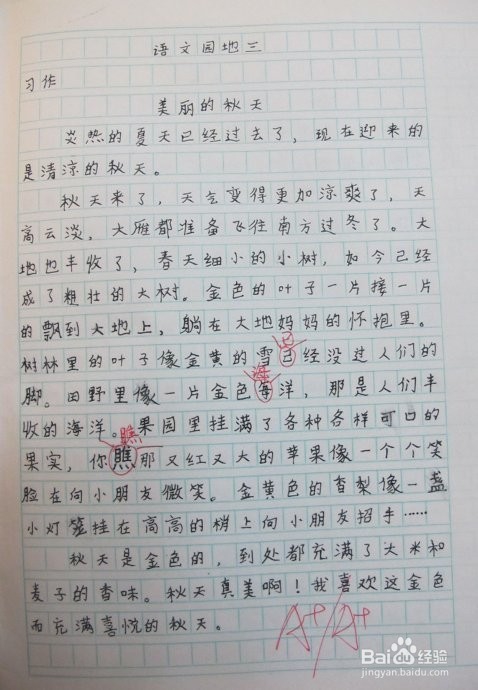 语文园地三
习作
美丽的秋天
炎热的夏天已经过去了，现在迎来的
是清凉的秋天。
秋天来了，天气变得更加凉爽了，天
高云淡，大雁都准备飞往南方过冬了。大
地也丰收了，春天细小的小树，如今已经
成了粗壮的大树。金色的叶子一片接一片
的飘到大地上，躺在大地妈妈的怀抱里。
已
树林里的叶子像金黄的雪已经没过人们的
海
脚。田野里像一片金色海洋，那是人们丰
收的海洋。果园里挂满了各种各样可口的
瞧
果实，你瞧那又红又大的苹果像一个个笑
脸在向小朋友微笑。金黄色的香梨像一盏
小灯笼挂在高高的梢上向小朋友招手……
秋天是金色的，到处都充满了大米和
麦子的香味。秋天真美啊！我喜欢这金色
而充满喜悦的秋天。
A+/A+
Baidu经验
jingyan.baidu.com